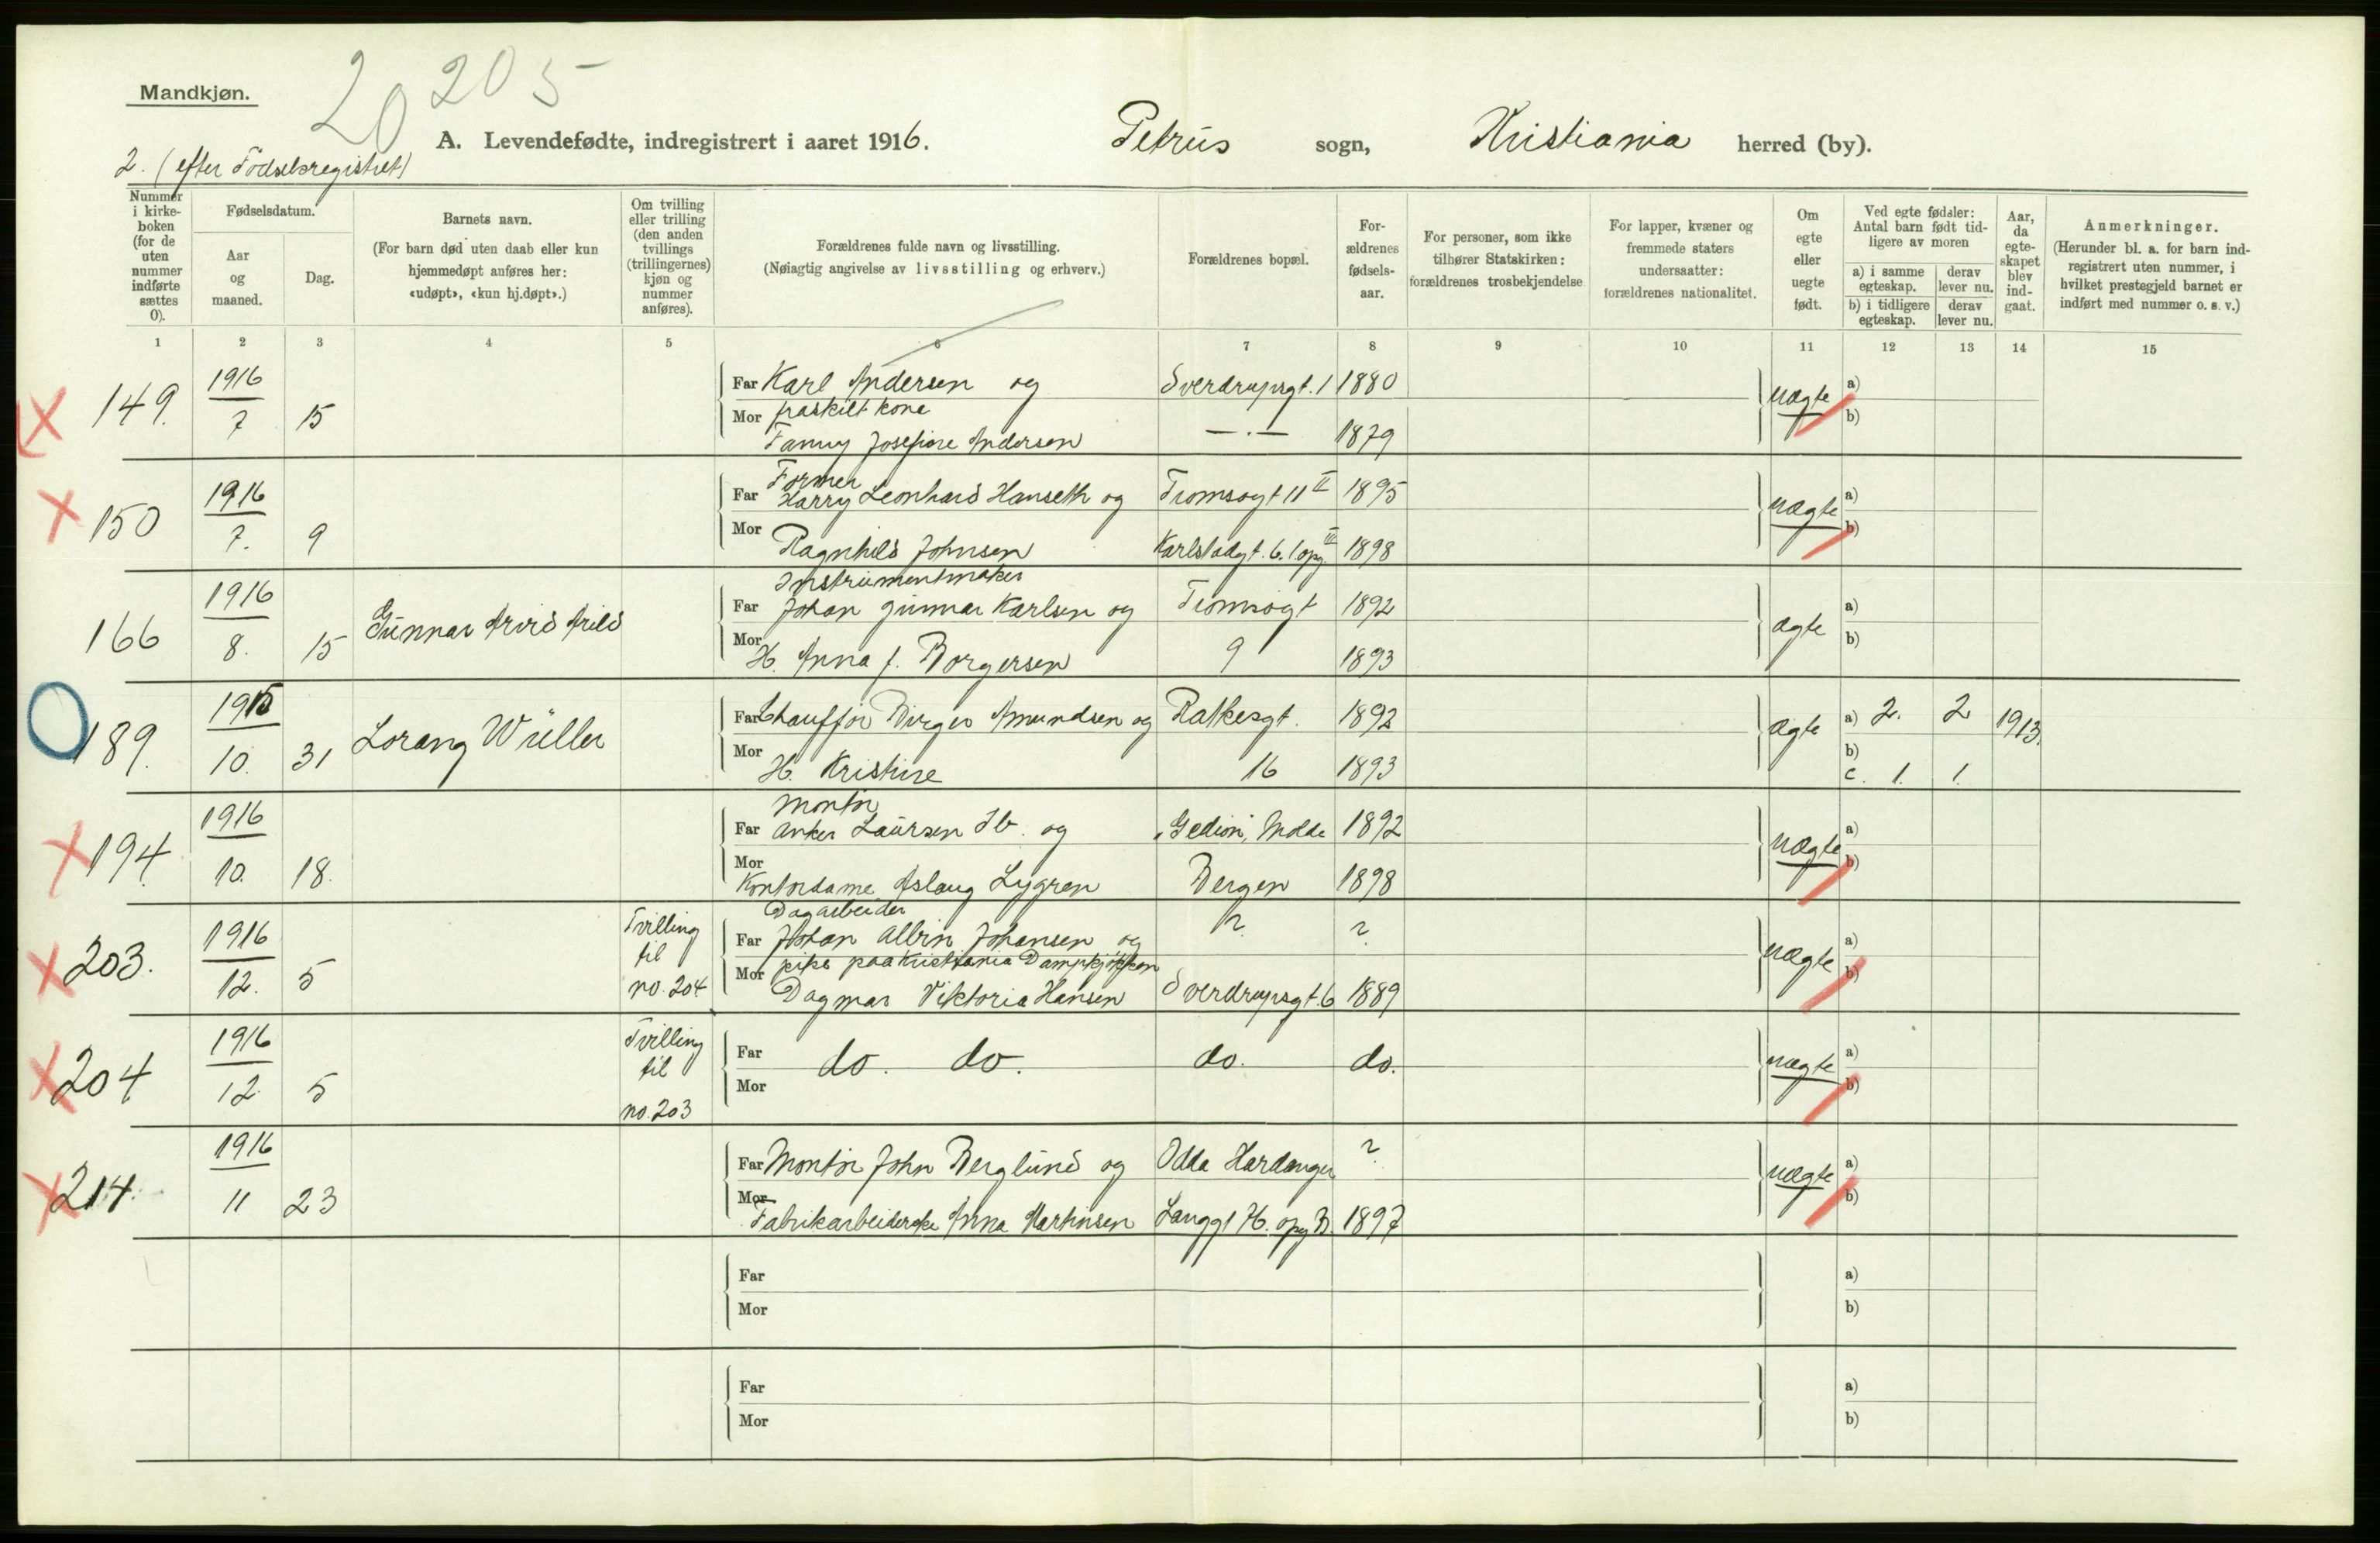 Mandkjøn.
20 205
A. Levendefødte, indregistrert i aaret 1916. Petrus sogn, Kristiania herred (by).
2. (efter Fødselsregistret)
Nummer i kirkeboken (for de uten nummer indførte sættes 0).
Fødselsdatum.
Aar og maaned.
Dag.
Barnets navn.
(For barn død uten daab eller kun hjemmedøpt anføres her: «udøpt», «kun hj.døpt».)
Om tvilling eller trilling (den anden tvillings (trillingernes) kjøn og nummer anføres).
Forældrenes fulde navn og livsstilling.
(Nøiagtig angivelse av livsstilling og erhverv.)
Forældrenes bopæl.
Forældrenes fødselsaar.
For personer, som ikke tilhører Statskirken: forældrenes trosbekjendelse
For lapper, kvæner og fremmede staters undersaatter: forældrenes nationalitet.
Om egte eller uegte født.
Ved egte fødsler: Antal barn født tidligere av moren
a) i samme egteskap. derav lever nu.
b) i tidligere egteskap. derav lever nu.
Aar, da egteskapet blev indgaat.
Anmerkninger.
(Herunder bl. a. for barn indregistrert uten nummer, i hvilket prestegjeld barnet er indført med nummer o. s. v.)
1 2 3 4 5 6 7 8 9 10 11 12 13 14 15
149. 1916 7 15 Far Karl Andersen og Sverdrupsgt. 1 1880 uægte a)
Mor fraskilt kone b)
Fanny Josefine Andersen —·— 1879
Former
150 1916 7. 9 Far Harry Leonhard Hanseth og Tromsøgt 11 II 1895 uægte a)
Mor Ragnhild Johnsen Karlstadgt. 6. 1 opg. III 1898 b)
Instrumentmaker
166 1916 8. 15 Gunnar Arvid Arild Far Johan Gunnar Karlsen og Tromsøgt 1892 ægte a)
Mor H. Anna f. Borgersen 9 1893 b)
189. 1915 10. 31 Lorang Wüller Far Chauffør Birger Amundsen og Ratkesgt. 1892 ægte a) 2. 2 1913.
Mor H. Kristine 16 1893 b)
c. 1. 1.
Montør
194. 1916 10. 18. Far Anker Laursen og "Gedion", Molde 1892 uægte a)
Mor Kontordame Aslaug Lygren Bergen 1898 b)
Dagarbeider
203. 1916 12. 5 Tvilling til no. 204 Far Johan Albin Johansen og ? ? uægte a)
Mor pike paa Kristiania Dampkjøkken b)
Dagmar Viktoria Hansen Sverdrupsgt. 6 1889
204 1916 12. 5 Tvilling til no. 203 Far do. do. do. do. uægte a)
Mor b)
214. 1916 11 23 Far Montør John Berglund og Odda Hardanger ? uægte a)
Mor Fabrikarbeiderske Anna Martinsen Langgt 76. opg B. 1897 b)
Far a)
Mor b)
Far a)
Mor b)